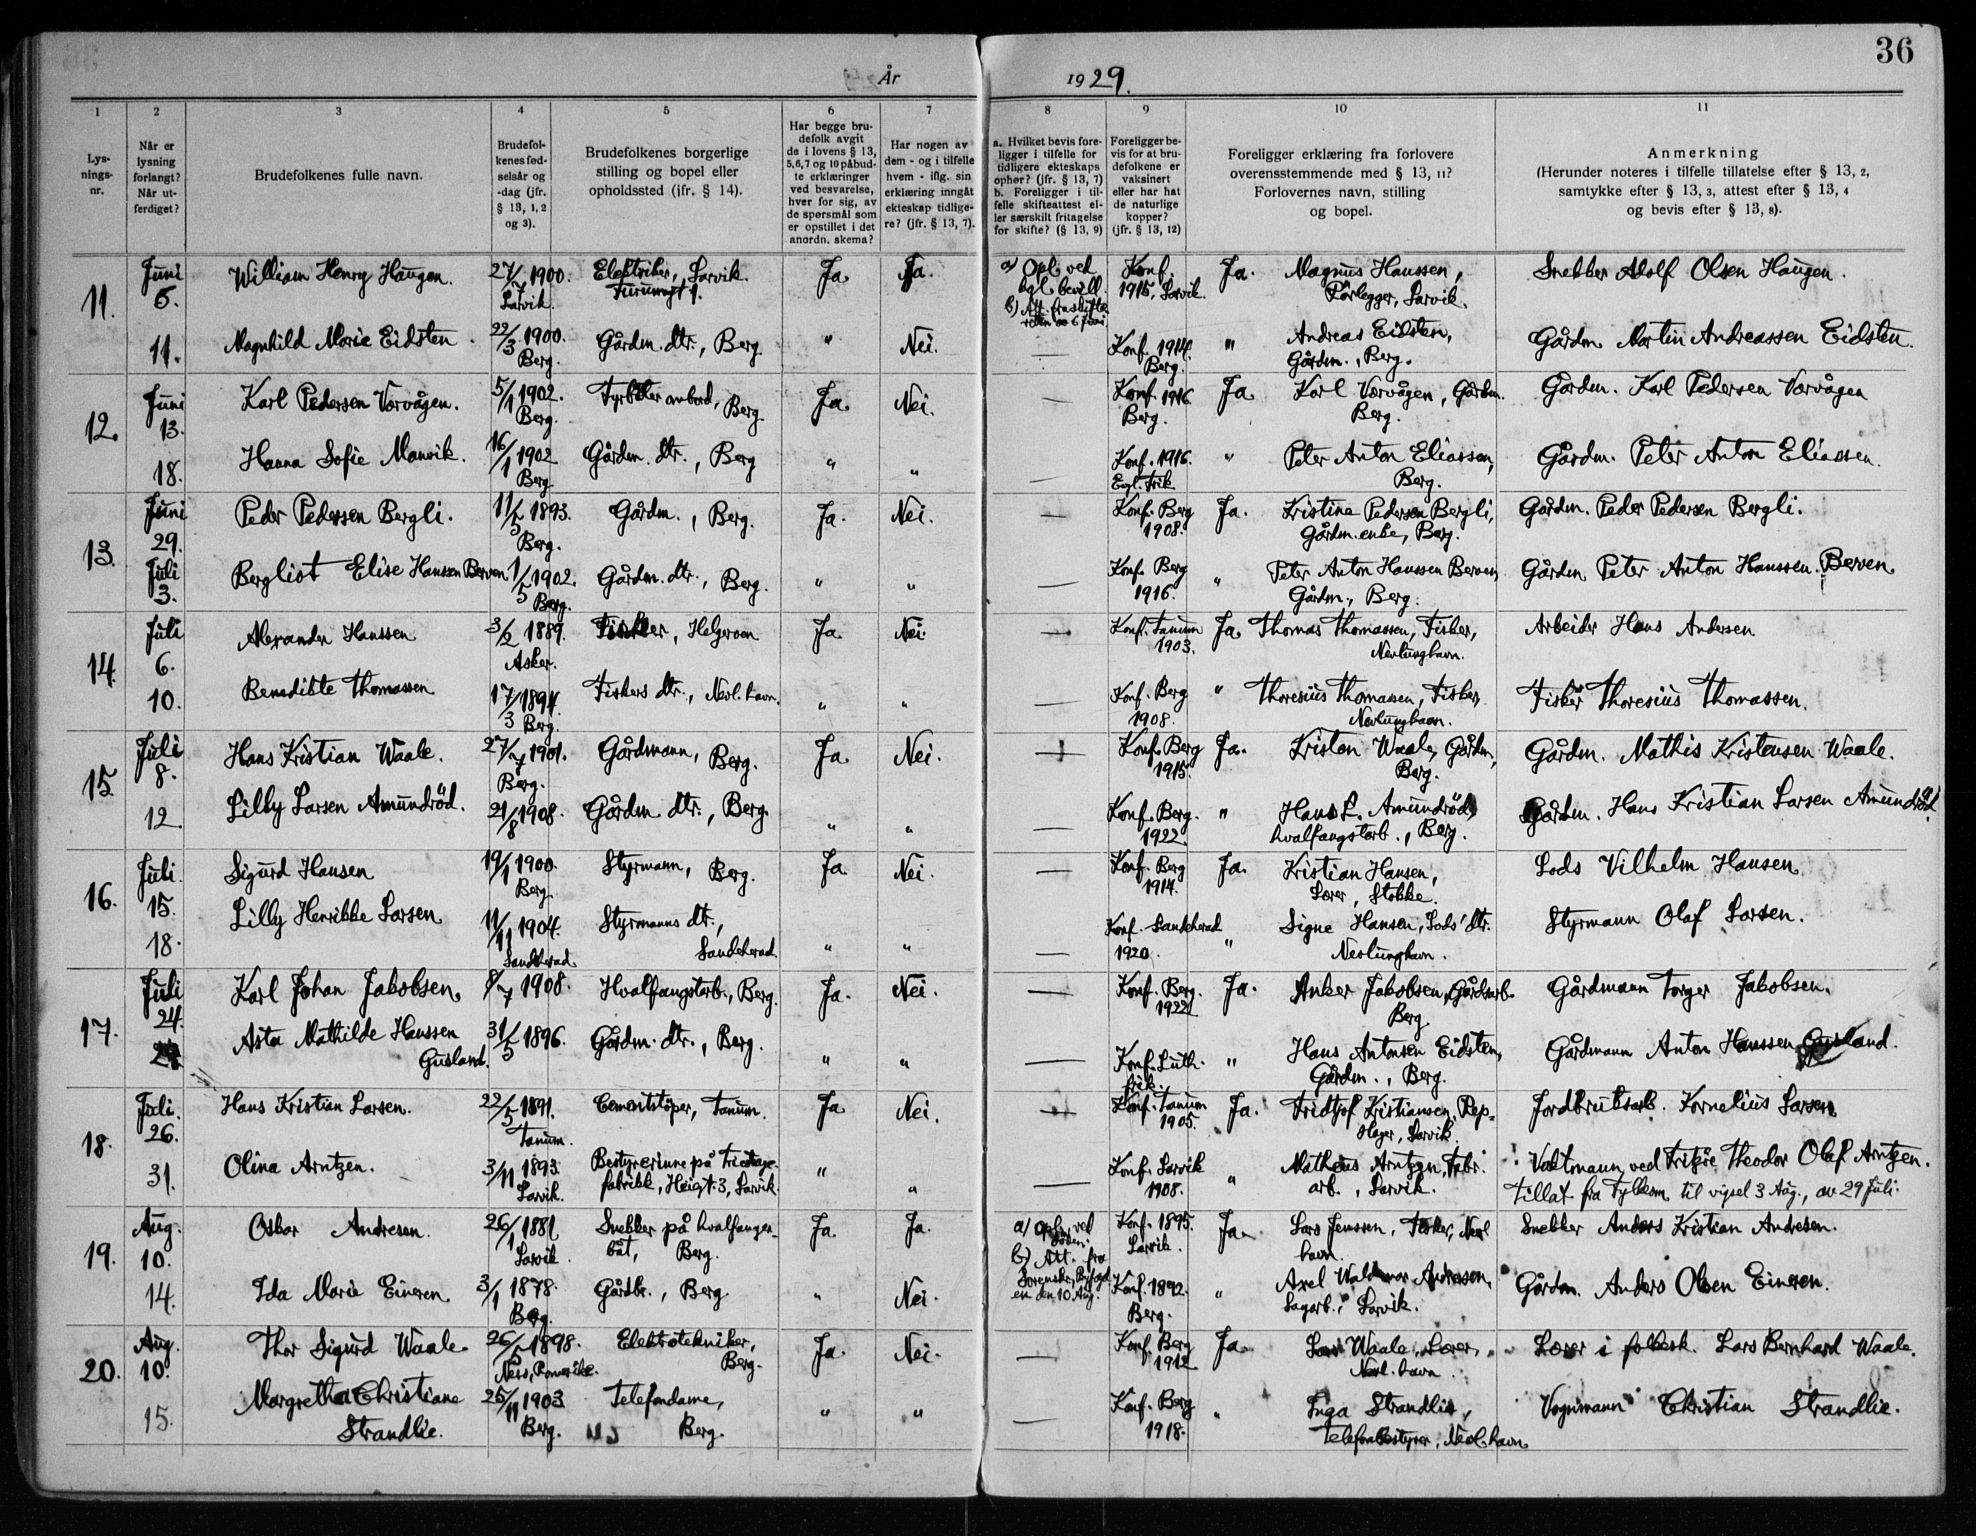 36
År 1929.
1 2 3 4 5 6 7 8 9 10 11
Lys-
nings-
nr.
Når er
lysning
forlangt?
Når ut-
ferdiget?
Brudefolkenes fulle navn.
Brudefol-
kenes fød-
selsår og
-dag (jfr.
§ 13, 1, 2
og 3).
Brudefolkenes borgerlige
stilling og bopel eller
opholdssted (jfr. § 14).
Har begge bru-
defolk avgit
de i lovens § 13,
5,6,7 og 10 påbud-
te erklæringer
ved besvarelse,
hver for sig, av
de spørsmål som
er opstillet i det
anordn. skema?
Har nogen av
dem - og i tilfelle
hvem - iflg. sin
erklæring inngåt
ekteskap tidlige-
re? (jfr. § 13, 7).
a. Hvilket bevis fore-
ligger i tilfelle for
tidligere ekteskaps
ophør? (jfr. § 13, 7)
b. Foreligger i til-
felle skifteattest el-
ler særskilt fritagelse
for skifte? (§ 13, 9)
Foreligger be-
vis for at bru-
defolkene er
vaksinert
eller har hat
de naturlige
kopper?
(jfr. § 13, 12)
Foreligger erklæring fra forlovere
overensstemmende med § 13, 11?
Forlovernes navn, stilling
og bopel.
Anmerkning
(Herunder noteres i tilfelle tillatelse efter § 13, 2,
samtykke efter § 13, 3, attest efter § 13, 4
og bevis efter § 13, 8).
11. Juni 5. William Henry Haugen. 27/7 1900. Larvik. Elektriker, Larvik Ja Ja. a) Opl. ved kgl. bevill. Konf. 1915, Larvik. Ja. Magnus Hanssen, Rørlegger, Larvik. Snekker Adolf Olsen Haugen.
11. Magnhild Marie Eidsten. 22/3 1900. Berg. Gårdm. dtr., Berg " Nei. — Konf. 1914. Berg. " Andreas Eidsten, Gårdm., Berg. Gårdm. Martin Andreassen Eidsten.
12. Juni 13. Karl Pedersen Vorvågen. 5/1 1902. Berg. Fyrbøter ombord, Berg. Ja. Nei. — Konf. 1916 Berg. Ja Karl Vorvågen, Gårdm. Berg. Gårdm. Karl Pedersen Vorvågen
18. Hanna Sofie Manvik. 16/1 1902 Berg Gårdm. dtr., Berg " " — Konf. 1916. Evgl. frik. " Peter Anton Eliassen, Berg. Gårdm. Peter Anton Eliassen.
13. Juni 29. Peder Pedersen Bergli. 11/5 1893. Berg. Gårdm., Berg. Ja. Nei. — Konf. Berg 1908. Ja. Kristine Pedersen Bergli, Gårdm. enke, Berg. Gårdm. Peder Pedersen Bergli.
Juli 3. Bergliot Elise Hanssen Berven. 1/5 1902. Berg. Gårdm. dtr., Berg. " " — Konf. Berg 1916. " Peter Anton Hanssen Berven, Gårdm., Berg. Gårdm Peter Anton Hanssen Berven.
14. Juli 6. Alexander Hanssen 3/2 1889. Asker. Fisker, Helgeroa Ja Nei. — Konf. Tanum 1903. Ja. Thomas Thomassen, Fisker, Nevlunghavn. Arbeider Hans Andersen
10. Benedikte Thomassen 17/3 1894. Berg. Fiskers dtr., Nevl. havn. " " — Konf. Berg 1908. " Thoresius Thomassen, Fisker, Nevlunghavn. Fisker Thoresius Thomassen.
15 Juli 8. Hans Kristian Waale. 27/7 1901. Berg. Gårdmann, Berg. Ja. Nei. — Konf. Berg 1915. Ja. Kristen Waale, Gårdm, Berg. Gårdm. Mathis Kristensen Waale.
12 Lilly Larsen Amundrød. 21/8 1908. Gårdm dtr., Berg. " " — Konf. Berg. 1922. " Hans L. Amundrød hvalfangstarb., Berg. Gårdm. Hans Kristian Larsen Amundrød.
16. Juli. 15. Sigurd Hansen 19/1 1900. Berg. Styrmann, Berg. Ja. Nei. — Konf. Berg 1914. Ja. Kristian Hansen, Lærer, Stokke. Lods Vilhelm Hansen
18. Lilly Henrikke Larsen 11/11 1904. Sandeherad Styrmanns dtr., Sandeherad. " " — Konf. Sandeherad 1920. " Signe Hansen, Lods' dtr. Nevlunghavn. Styrmann Olaf Larsen.
17. Juli 24. Karl Johan Jakobsen. 8/7 1908. Hvalfangstarb., Berg. Ja. Nei. — Konf. Berg. 1922 Ja. Anker Jakobsen, Gårdsarb. Berg. Gårdmann Torger Jakobsen.
Asta Mathilde Hanssen Gusland. 31/5 1896. Gårdm. dtr., Berg. " " — Konf. Luth. frik. " Hans Antonsen Eidsten, Gårdm., Berg. Gårdmann Anton Hanssen Gusland.
18. Juli. 26. Hans Kristian Larsen. 22/5 1891. Tanum. Cementstøper, Tanum. Ja Nei. — Konf. Tanum 1905. Ja. Fridtjof Kristiansen, Rep-slager, Larvik. Jordbruksarb. Kornelius Larsen
31. Olina Arntzen. 3/11 1893. Larvik. Bestyrerinne på Tricotagefabrikk, Heigt. 3, Larvik " " — Konf. Larvik 1908. " Matheus Arntzen, Fabr. arb., Larvik. Vaktmann ved Fritzøe Theodor Olaf Arntzen.
Tillat. fra Fylkesm. til vigsel 3 Aug., av 29 Juli.
19. Aug. 10. Oskar Andresen. 26/1 1881 Larvik Snekker på hvalfanger-båt, Berg. Ja. Ja. a) Opl. ved døden. b) Att. fra Sorenskr. den 10 Aug. Konf. 1895. Larvik. Ja. Lars Jenssen, Fisker, Nevl havn. Snekker Anders Kristian Andresen.
14. Ida Marie Eineren. 3/1 1878. Berg. Gårdbr., Berg. " Nei. Konf. 1892. Berg. " Axel Waldemar Andresen, Sagarb., Larvik. Gårdm. Anders Olsen Eineren.
20. Aug. 10. Thor Sigurd Waale 26/5 1898. Nes, Romerike. Elektrotekniker, Berg. Ja. Nei. — Konf. Berg 1912 Ja. Lars Waale, Lærer, Nevl. havn. Lærer i folkesk. Lars Bernhard Waale.
15. Margretha Christiane Strandlie. 25/11 1903 Berg. Telefondame, Berg. " " — Konf. Berg 1918. " Inga Strandlie, Telefonbestyrer, Nevl. havn Vognmann Christian Strandlie.